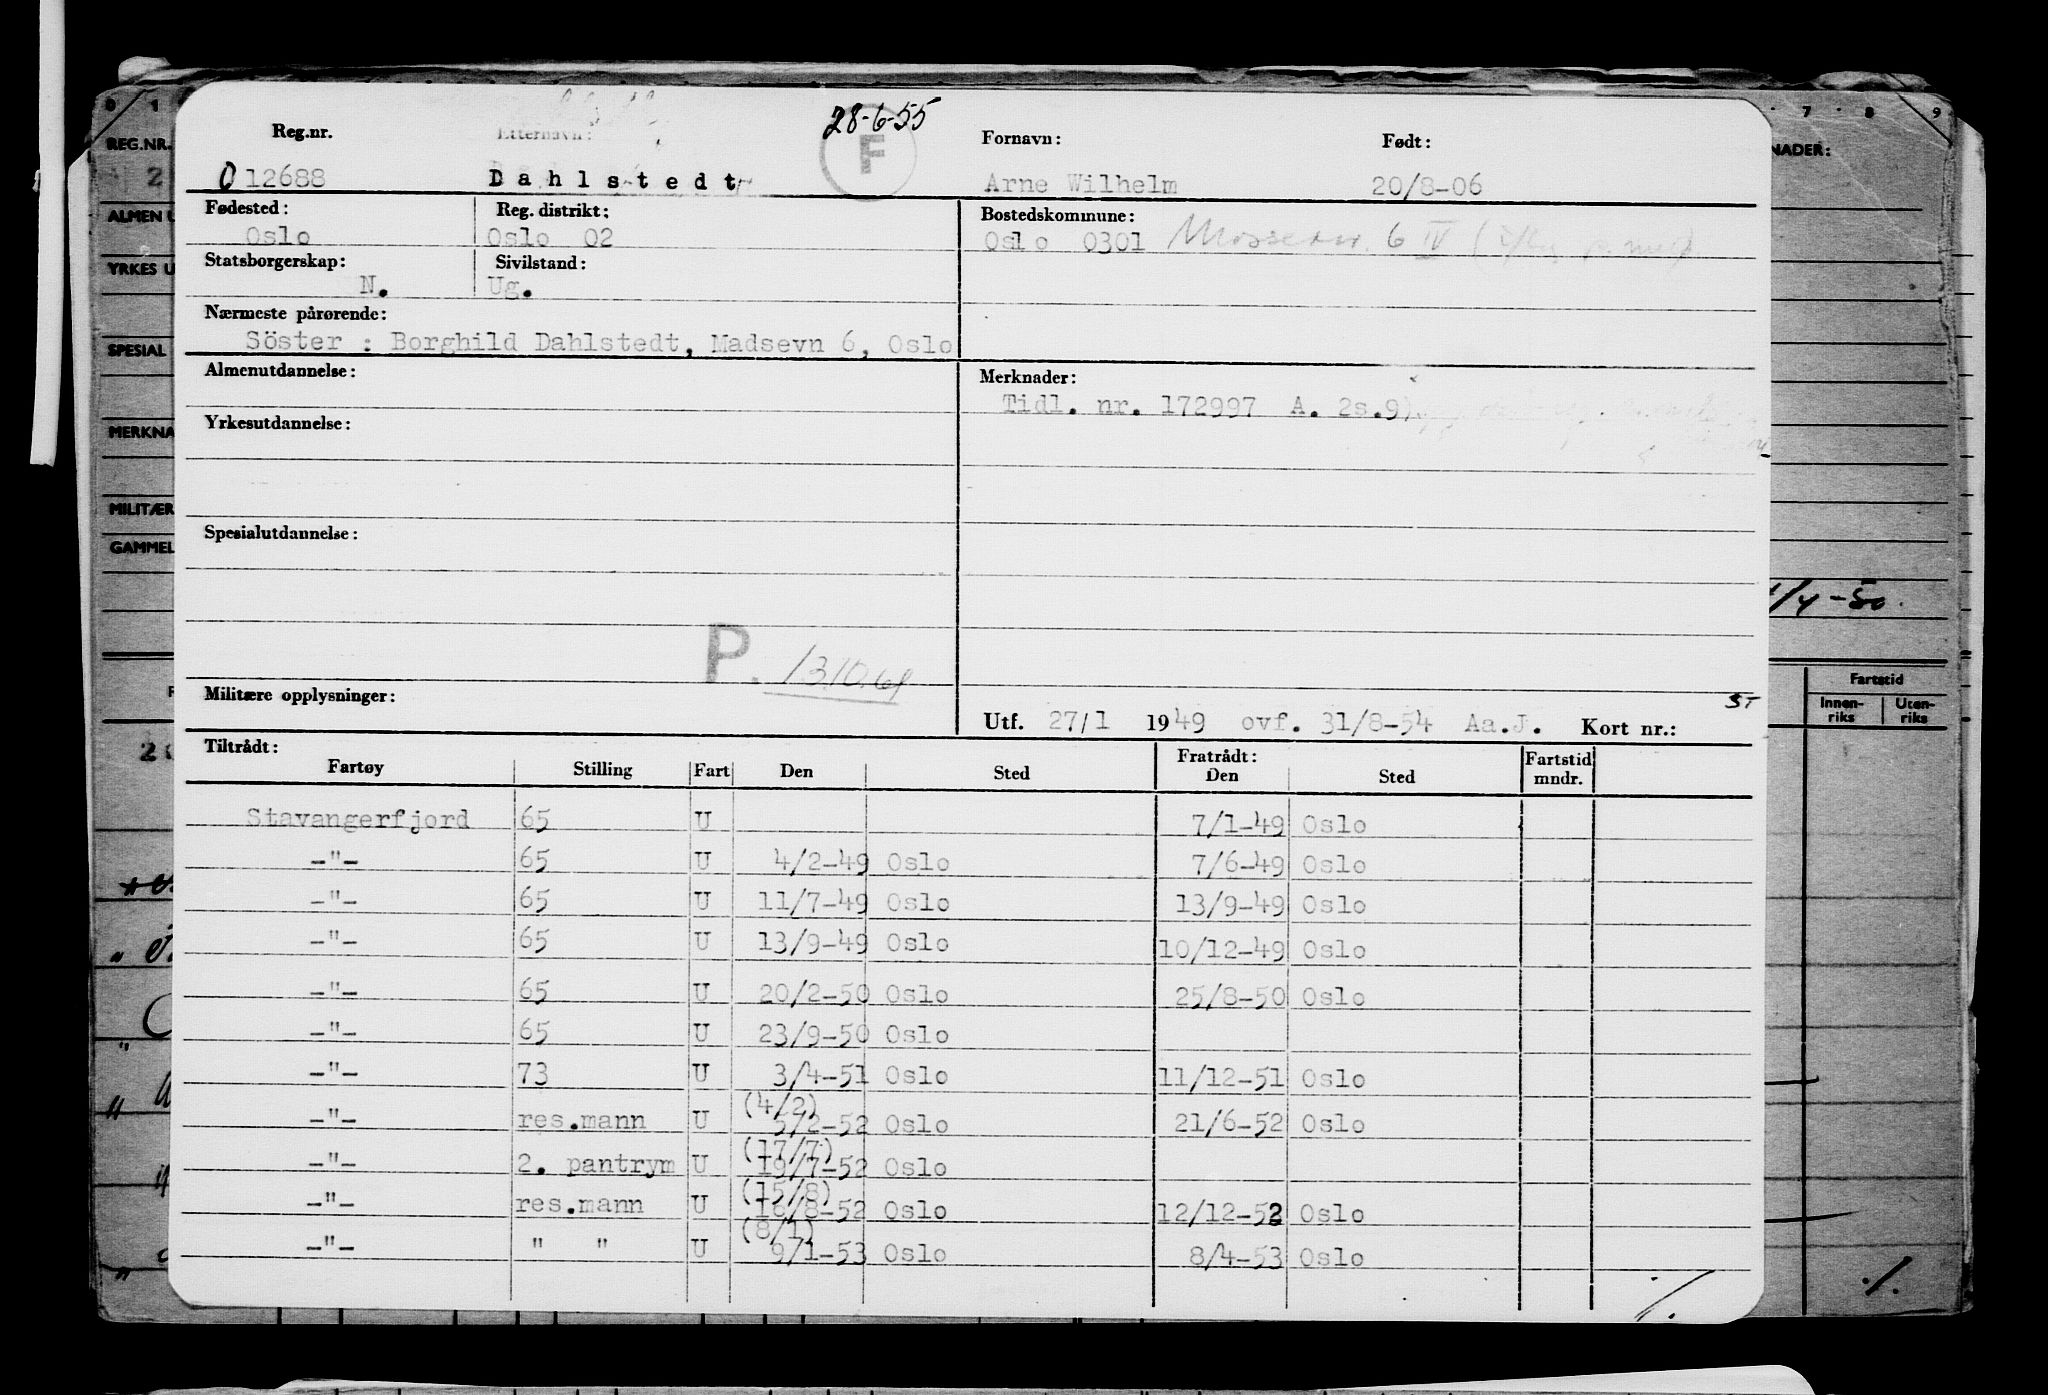 28-6-55
Reg.nr. Etternavn: F Fornavn: Født:
0 12688 Dahlstedt Arne Wilhelm 20/8-06
Fødested: Reg. distrikt: Bostedskommune:
Oslo Oslo 02 Oslo 0301 6 IV
Statsborgerskap: Sivilstand:
N. Ug.
Nærmeste pårørende:
Söster : Borghild Dahlstedt, Madsevn 6, Oslo
Almenutdannelse: Merknader:
Tidl. nr. 172997 A. 2s.9)
Yrkesutdannelse:
Spesialutdannelse:
P. 13.10.61
Militære opplysninger:
Utf. 27/1 1949 ovf. 31/8-54 Aa.J. Kort nr.: ST
Tiltrådt: Fratrådt: Fartstid
Fartøy Stilling Fart Den Sted Den Sted mndr.
Stavangerfjord 65 U 7/1-49 Oslo
-"- 65 U 4/2-49 Oslo 7/6-49 Oslo
-"- 65 U 11/7-49 Oslo 13/9-49 Oslo
-"- 65 U 13/9-49 Oslo 10/12-49 Oslo
-"- 65 U 20/2-50 Oslo 25/8-50 Oslo
-"- 65 U 23/9-50 Oslo
-"- 73 U 3/4-51 Oslo 11/12-51 Oslo
(4/2)
-"- res.mann U 5/2-52 Oslo 21/6-52 Oslo
(17/7)
-"- 2. pantrym U 19/7-52 Oslo
(15/8)
-"- res.mann U 16/8-52 Oslo 12/12-52 Oslo
(8/1)
-"- " " U 9/1-53 Oslo 8/4-53 Oslo
./.
0 1
REG.NR.
2
ALMEN U
YRKES U
SPESIAL
MERKNA
MILITÆR
GAMMEL
7 8 9
NADER:
1/4-50.
Fartstid
Innen-riks Uten-riks
./.